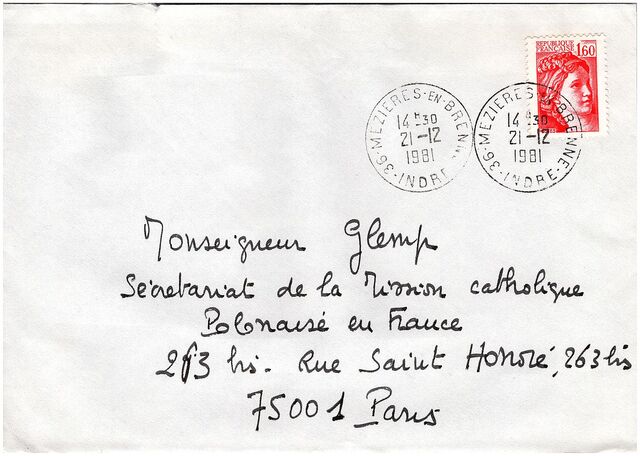 REPUBLIQUE
FRANCAISE 1,60
36-MEZIERES-EN-BRENNE
14 H 30
21-12
1981
INDRE
36-MEZIERES-EN-BRENNE
14 H 30
21-12
1981
INDRE
Monseigneur Glemp
Sécretariat de la Mission catholique
Polonaisé en France
263 bis. Rue Saint Honoré, 263 bis
75001 Paris